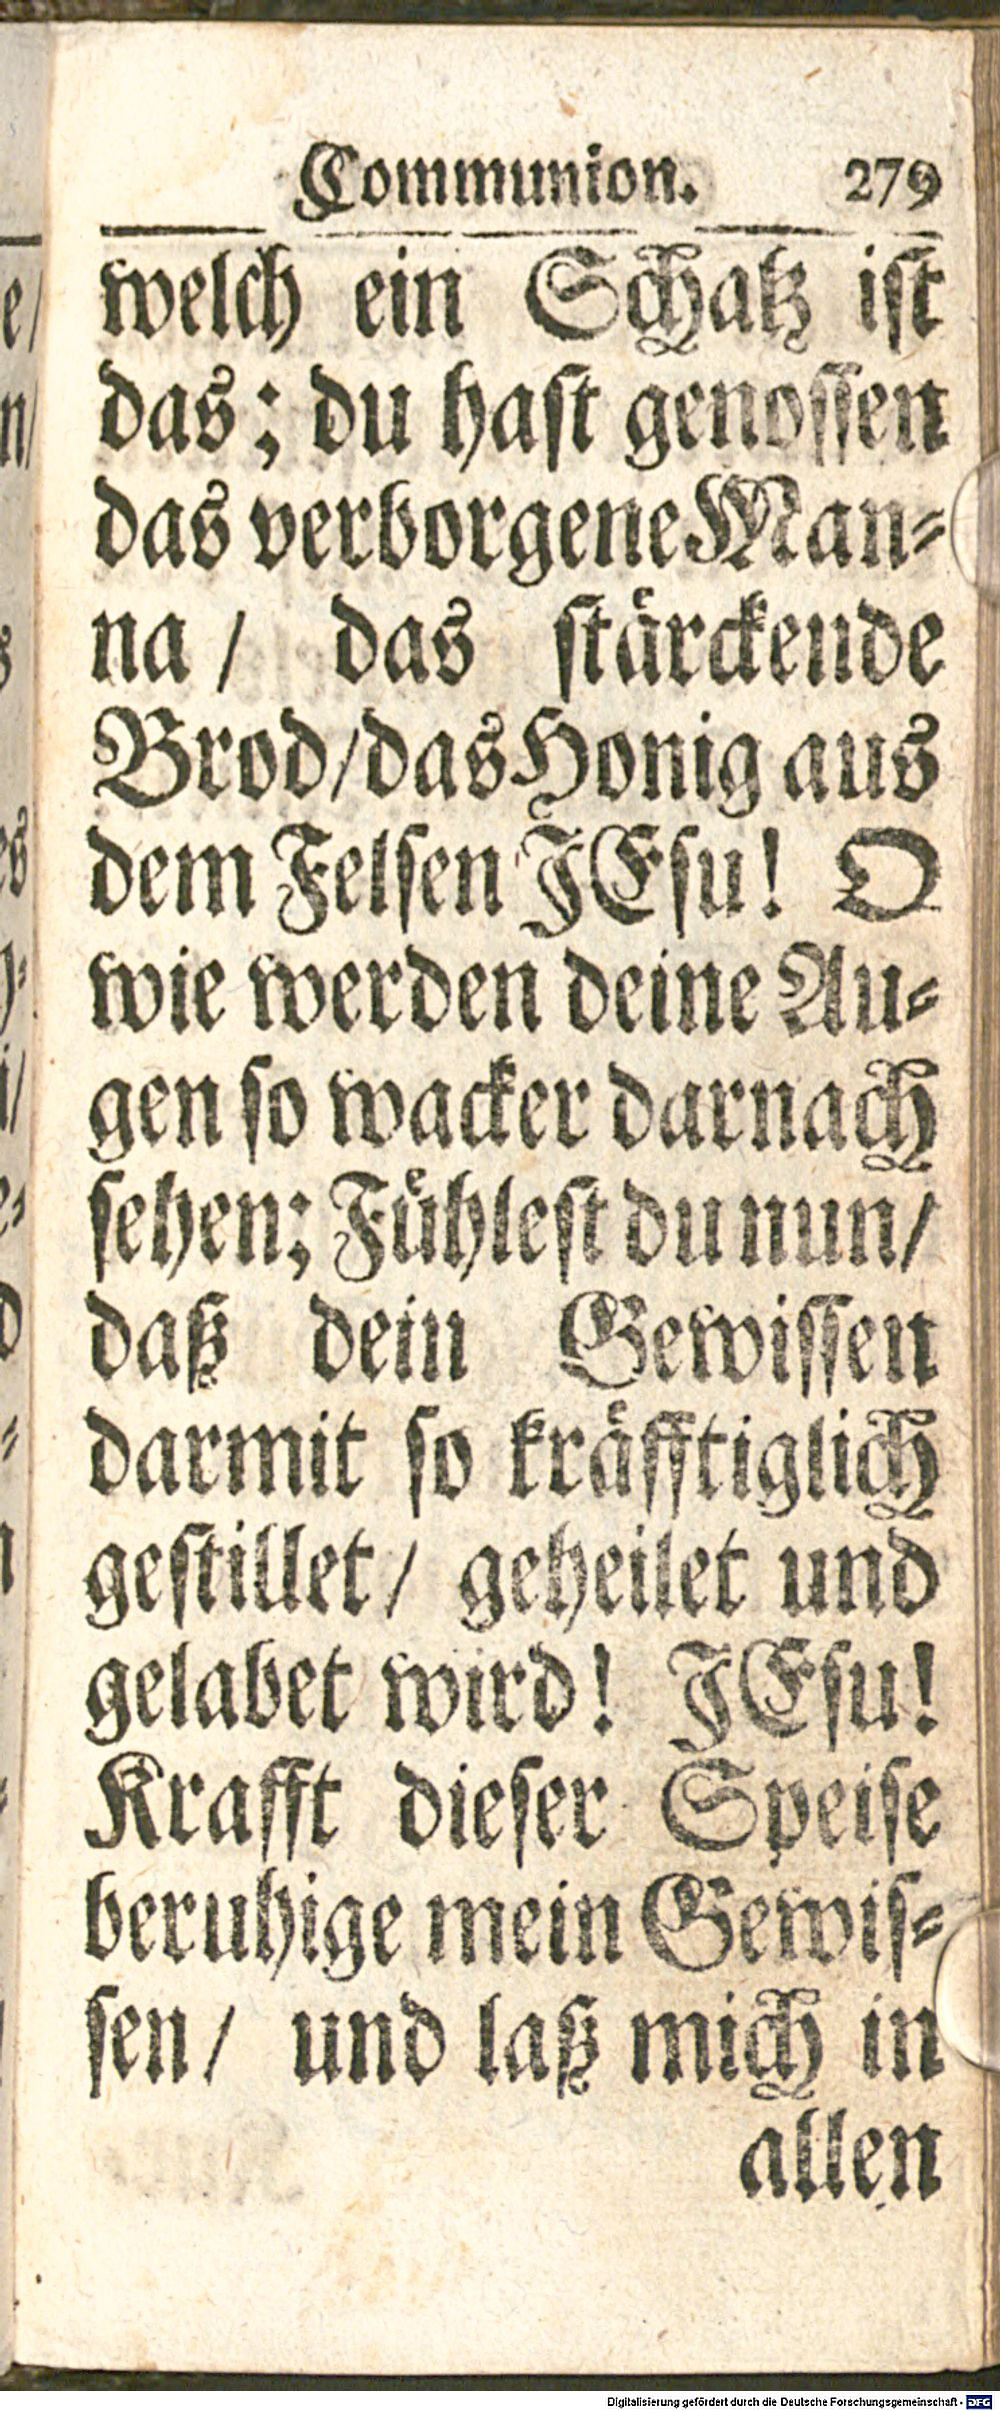 Communion. 279
welch ein Schatz ist
das; du hast genossen
das verborgene Man-
na / das stärckende
Brod/das Honig aus
dem Felsen JEsu! O
wie werden deine Au-
gen so wacker darnach
sehen; Fühlest du nun/
daß dein Gewissen
darmit so kräfftiglich
gestillet/ geheilet und
gelabet wird! JEsu!
Krafft dieser Speise
beruhige mein Gewis-
sen/ und laß mich in
allen
Digitalisierung gefördert durch die Deutsche Forschungsgemeinschaft - DFG